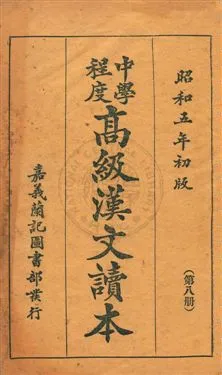 昭和五年初版
(第八册)
中學程度
高級漢文讀本
嘉義蘭記圖書部業行